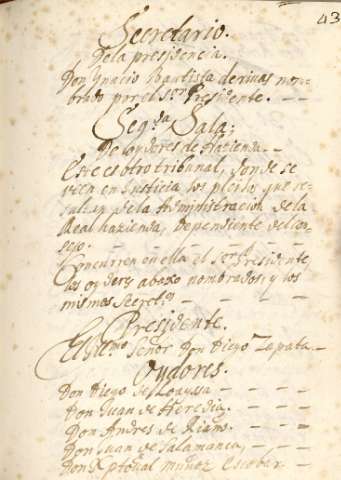 43
Secretario.
De la presidencia.
Don Ignacio Bautista de rivas nom-
brado por el s.or Presidente. - -
Seg.da Sala;
De oydores de Hazienda -
Este es otro tribunal, donde se
veen en Justicia los pleitos que re-
saltan de la Administracion de la
Real hazienda, dependiente del con-
sejo. - - - - -
Concurren en ella el s.or Presidente
los oydores abaxo nombrados, y los
mismos Secret.os - - - -
Presidente.
El Ill.mo Señor Don Diego Zapata. -
Oydores.
Don Diego de Loayssa - - -
Don Juan de Heredia. - - -
Don Andres de Riaño. - - -
Don Juan de Salamanca, - -
Don Xptoual muñoz Escobar -